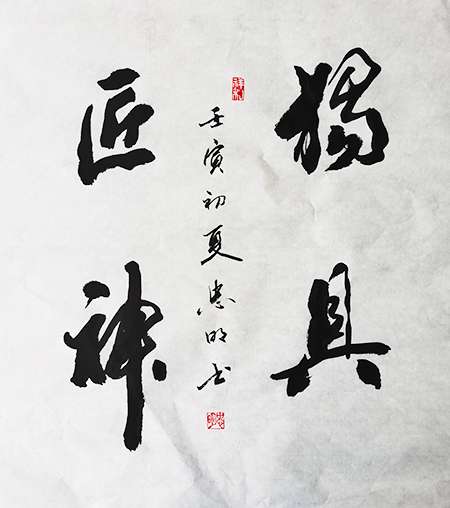 獨具
匠神
壬寅初夏忠明书